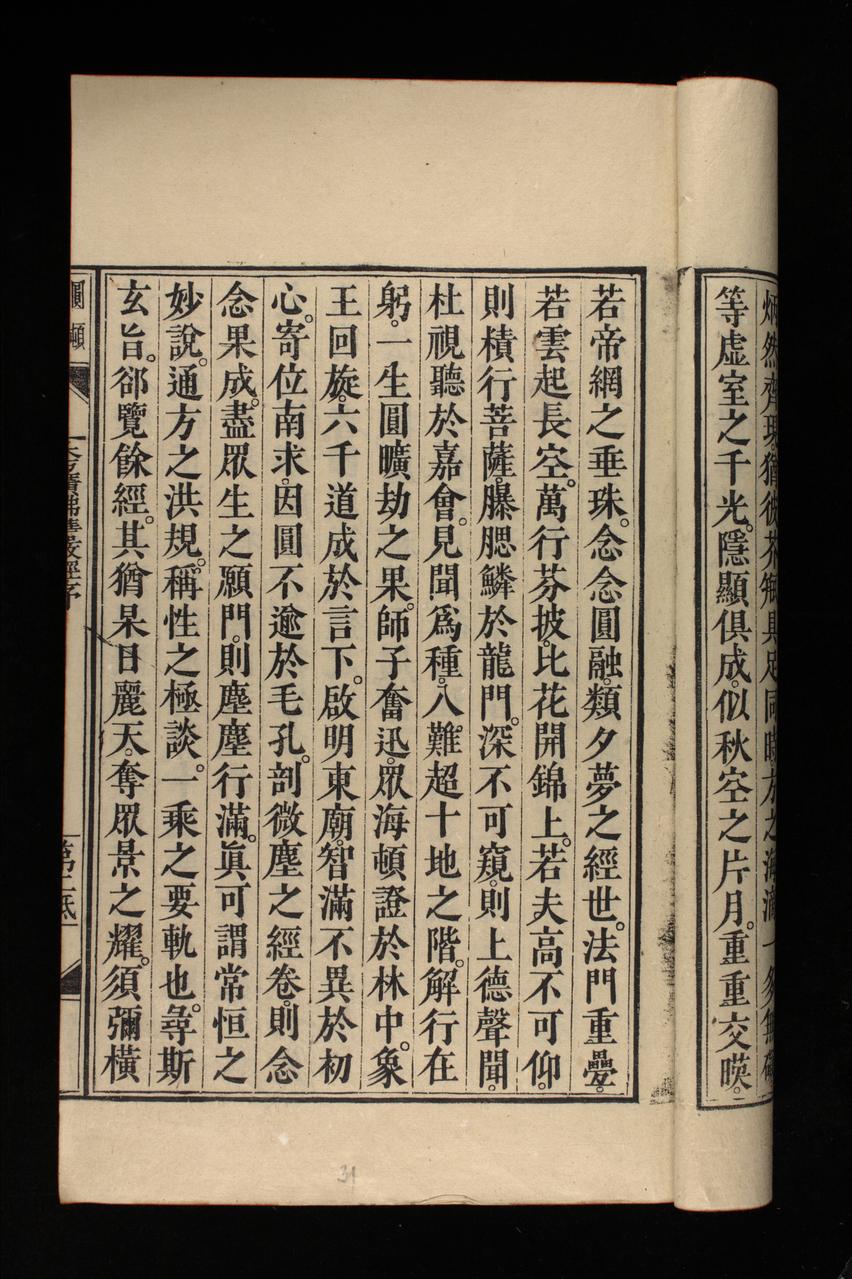 炳然齊現猶彼芥缾具足同時方之海滴一多無礙
等虛室之千光。隱顯俱成。似秋空之片月。重重交暎。
若帝網之垂珠。念念圓融。類夕夢之經世。法門重疊。
若雲起長空。萬行芬披。比花開錦上。若夫高不可仰。
則積行菩薩。曝腮鱗於龍門。深不可窺。則上德聲聞。
杜視聽於嘉會。見聞爲種。八難超十地之階。解行在
躬。一生圓曠劫之果。師子奮迅。眾海頓證於林中。象
王回旋。六千道成於言下。啟明東廟。智滿不異於初
心。寄位南求。因圓不逾於毛孔。剖微塵之經卷。則念
念果成。盡眾生之願門。則塵塵行滿。眞可謂常恒之
妙說。通方之洪規。稱性之極談。一乘之要軌也。尋斯
玄旨。郤覽餘經。其猶杲日麗天。奪眾景之耀。須彌橫
圓頓
大方廣佛華嚴經序
31